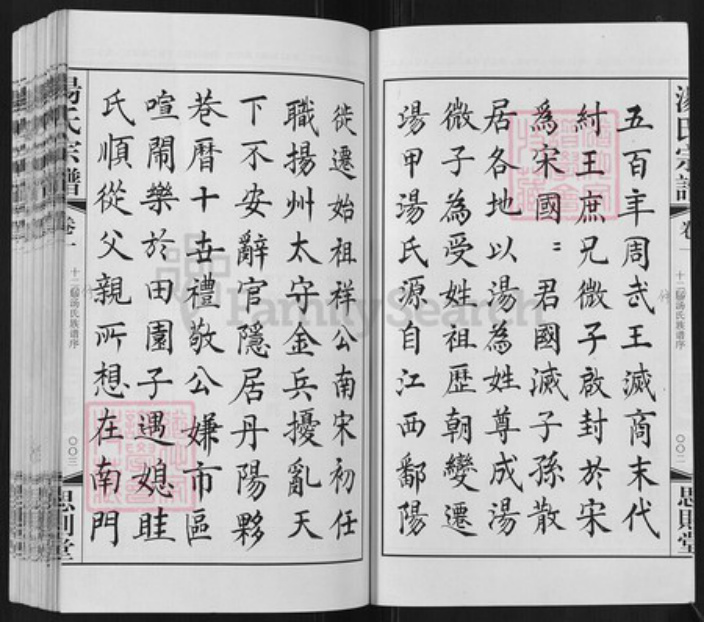 湯氏宗譜 卷一 十二屆湯氏族譜序 〇〇二 思則堂
五百年周武王滅商末代
紂王庶兄微子啟封於宋
爲宋國〻君國滅子孫散
居各地以湯為姓尊成湯
微子為受姓祖歷朝變遷
湯甲湯氏源自江西鄱陽
徙遷始祖祥公南宋初任
職揚州太守金兵擾亂天
下不安辭官隱居丹陽夥
巷曆十世禮敬公嫌市區
喧鬧樂於田園子遇媳眭
氏順從父親所想在南門
湯氏宗譜 卷一 十二屆湯氏族譜序 〇〇三 思則堂
FamilySearch